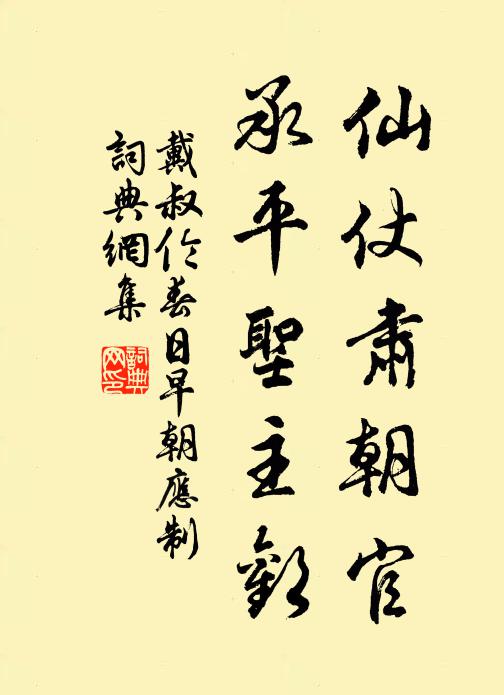 仙仗肅朝官
承平聖主歡
戴叔伦春日早朝應制
詞典網集
詞典
网印